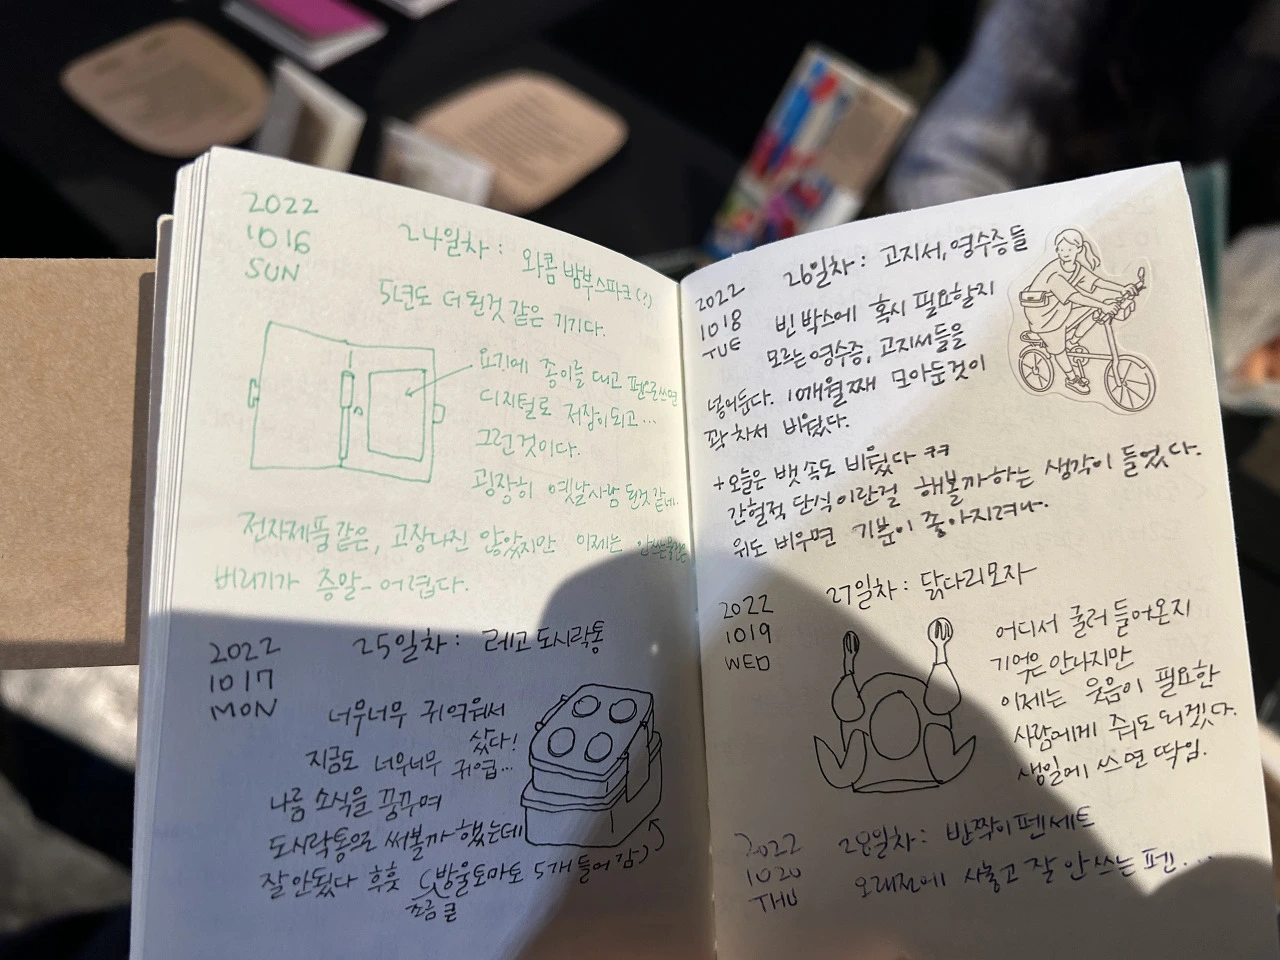 2022
10 16
SUN
24일차 : 와콤 밤부스파크(?)
5년도 더 된것 같은 기기다.
요기에 종이를 대고 펜으로쓰면
디지털로 저장이되고...
그런것이다.
굉장히 옛날사람 된것 같네..
전자제품같은, 고장나진 않았지만 이제는
버리기가 증말_ 어렵다.
2022
10 17
MON
25일차 : 레고 도시락통
너무너무 귀여워서
샀다!
지금도 너무너무 귀엽...
나름 소식을 꿈꾸며
도시락통으로 써볼까 했는데
잘 안됐다 후훗 (방울토마토 5개 들어감)
조금 큰
2022
10 18
TUE
26일차 : 고지서, 영수증들
빈 박스에 혹시 필요할지
모르는 영수증, 고지서들을
넣어둔다. 10개월째 모아둔것이
꽉 차서 비웠다.
+ 오늘은 뱃속도 비웠다 ㅋㅋ
간헐적 단식이란걸 해볼까하는 생각이 들었다.
위도 비우면 기분이 좋아지려나.
2022
10 19
WED
27일차 : 닭다리모자
어디서 굴러 들어온지
기억은 안나지만
이제는 웃음이 필요한
사람에게 줘도 되겠다.
생일에 쓰면 딱임.
2022
10 20
THU
28일차 : 반짝이 펜세트
오래전에 사놓고 잘 안 쓰는 펜...